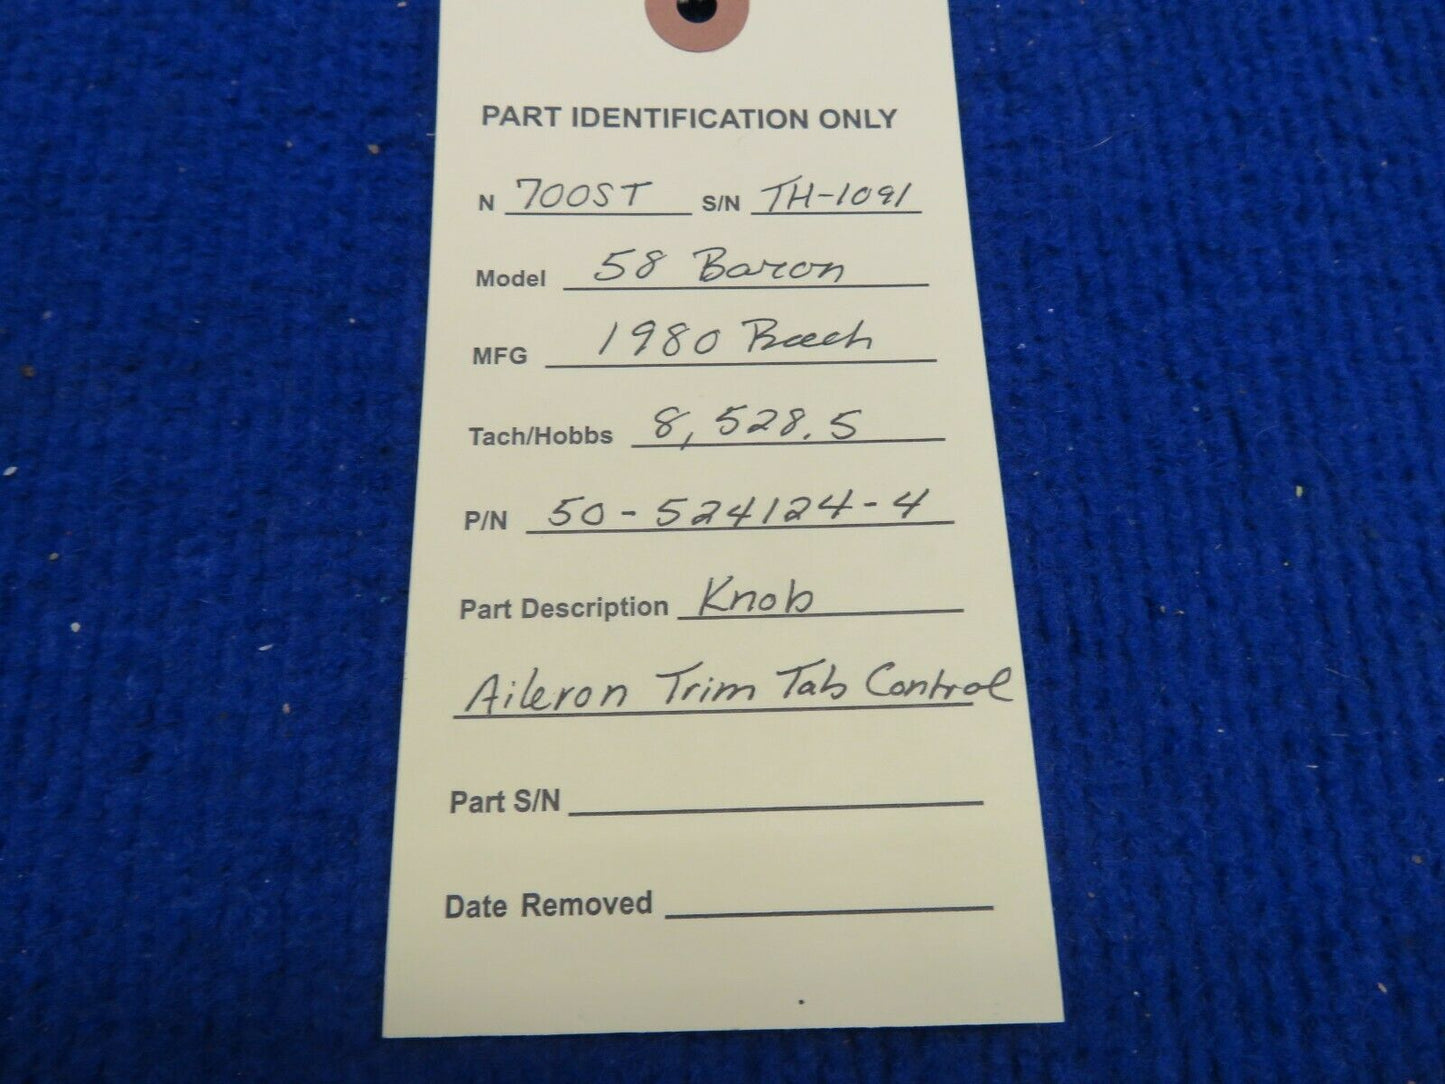 PART IDENTIFICATION ONLY
N 700ST S/N TH-1091
Model 58 Baron
MFG 1980 Beech
Tach/Hobbs 8,528.5
P/N 50-524124-4
Part Description Knob
Aileron Trim Tab Control
Part S/N
Date Removed